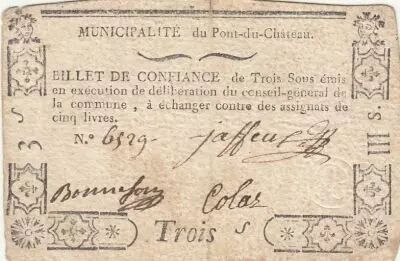 MUNICIPALITÉ du Pont-du-Château.
BILLET DE CONFIANCE de Trois Sous émis
en exécution de délibération du conseil-général de
la commune , à échanger contre des assignats de
cinq livres.
N.° 6529.
3 S
S. III
Colas
Trois S